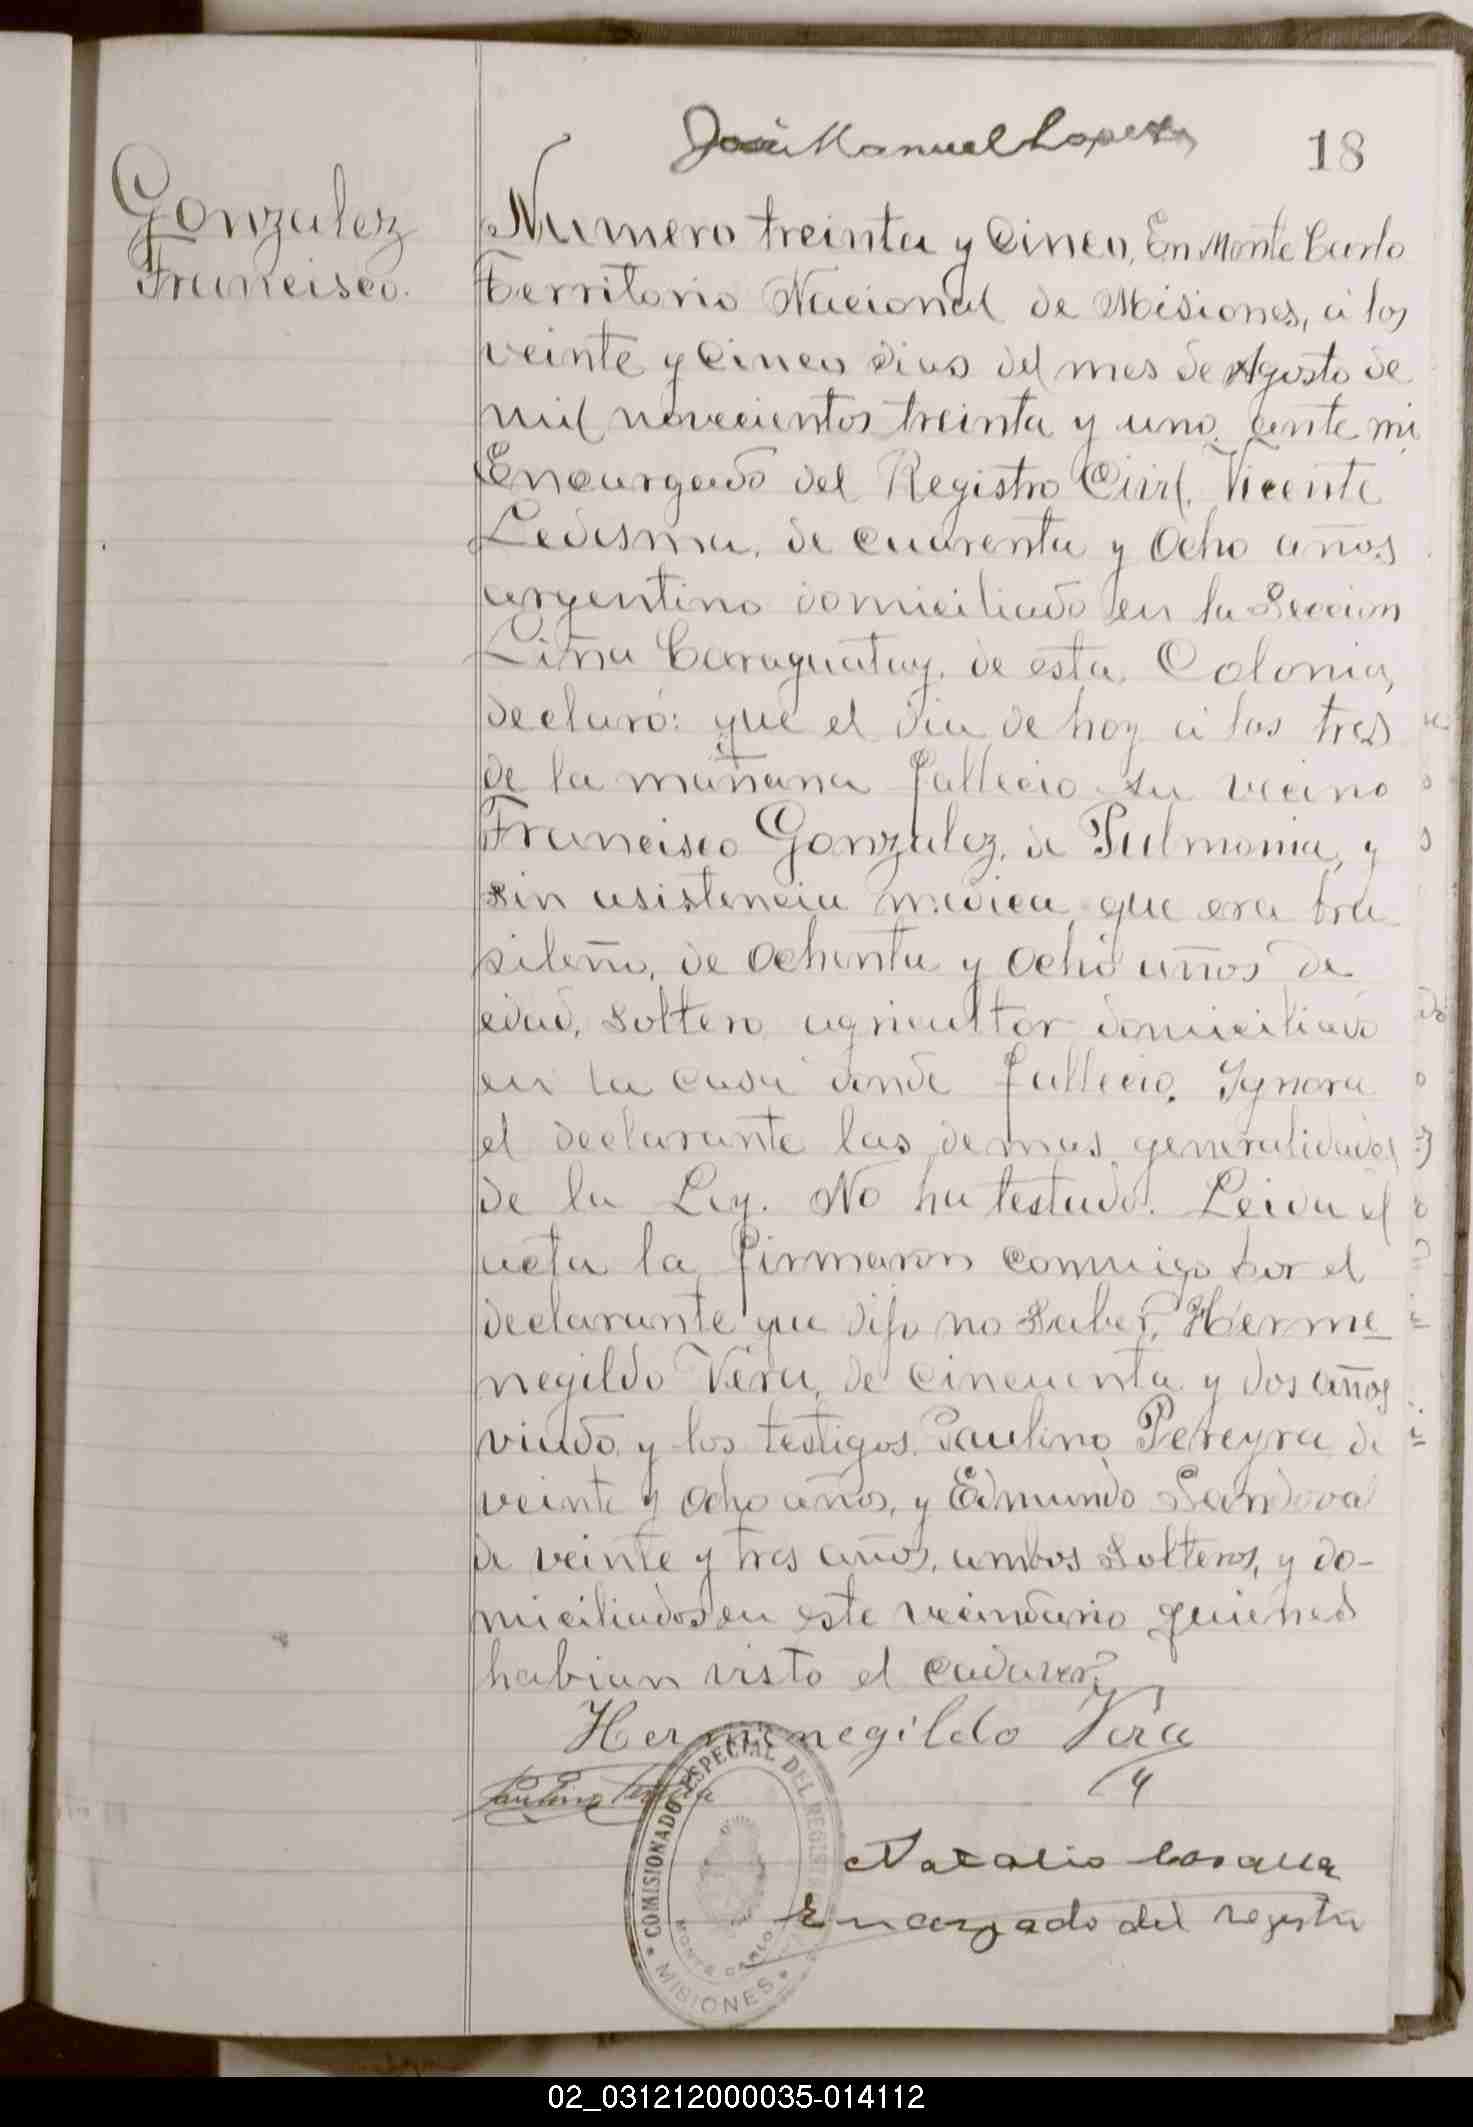 José Manuel Lopez
18
Gonzalez
Francisco.
Numero treinta y cinco, En Monte Carlo
Territorio Nacional de Misiones, á los
veinte y cinco dias del mes de Agosto de
mil novecientos treinta y uno, ante mi
Encargado del Registro Civil, Vicente
Ledesma, de cuarenta y ocho años
argentino domiciliado en la Seccion
Liña Caraguatay, de esta Colonia,
declaró: que el dia de hoy á las tres
de la mañana fallecio su vecino
Francisco Gonzalez, de Pulmonia, y
sin asistencia medica, que era bra
sileño, de ochenta y ocho años de
edad, soltero agricultor domiciliado
en la casa donde fallecio. Ignora
el declarante las demas generalidades
de la Ley. No ha testado. Leida el
acta la firmaron conmigo por el
declarante que dijo no saber, Herme
negildo Vera, de cincuenta y dos años
viudo y los testigos Paulino Pereyra de
veinte y ocho años, y Edmundo Sandoval
de veinte y tres años, ambos solteros, y do-
miciliados en este vecindario quienes
habian visto el cadaver.
Hermenegildo Vera
Paulino
COMISIONADO ESPECIAL DEL REGIS
MONTE CARLO
MISIONES
Natalio
Encargado del registro
02_031212000035-014112